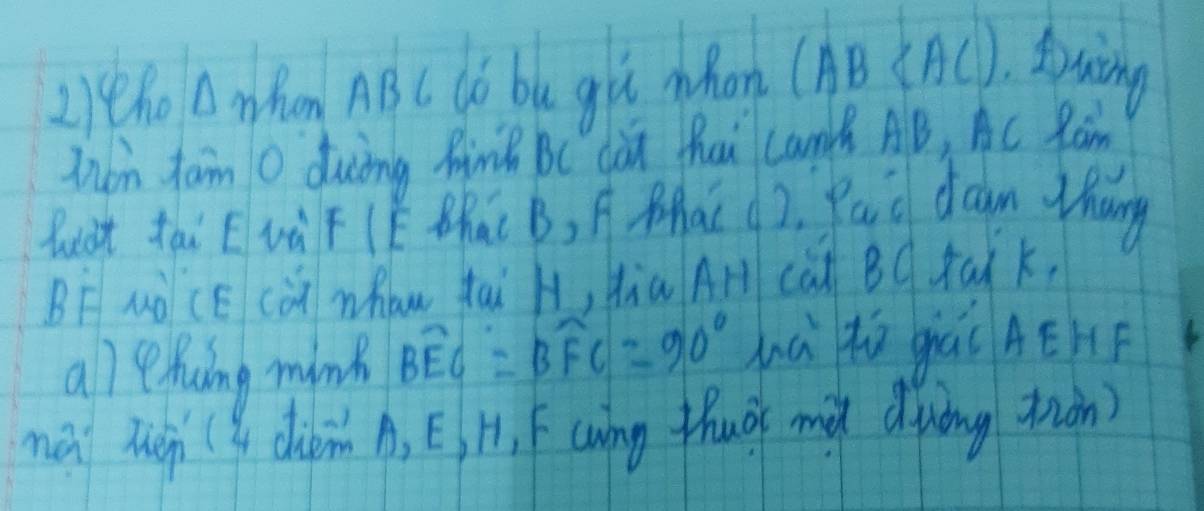 2) Cho Δ nhọn ABC có ba góc nhọn (AB < AC). Đường
tròn tâm O đường kính BC cắt hai cạnh AB, AC lần
lượt tại E và F (E khác B, F khác C). Các đoạn thẳng
BF và CE cắt nhau tại H, tia AH cắt BC tại K.
a) Chứng minh BÊC = BF̂C = 90° và tứ giác AEHF
nội tiếp (4 điểm A, E, H, F cùng thuộc một đường tròn)